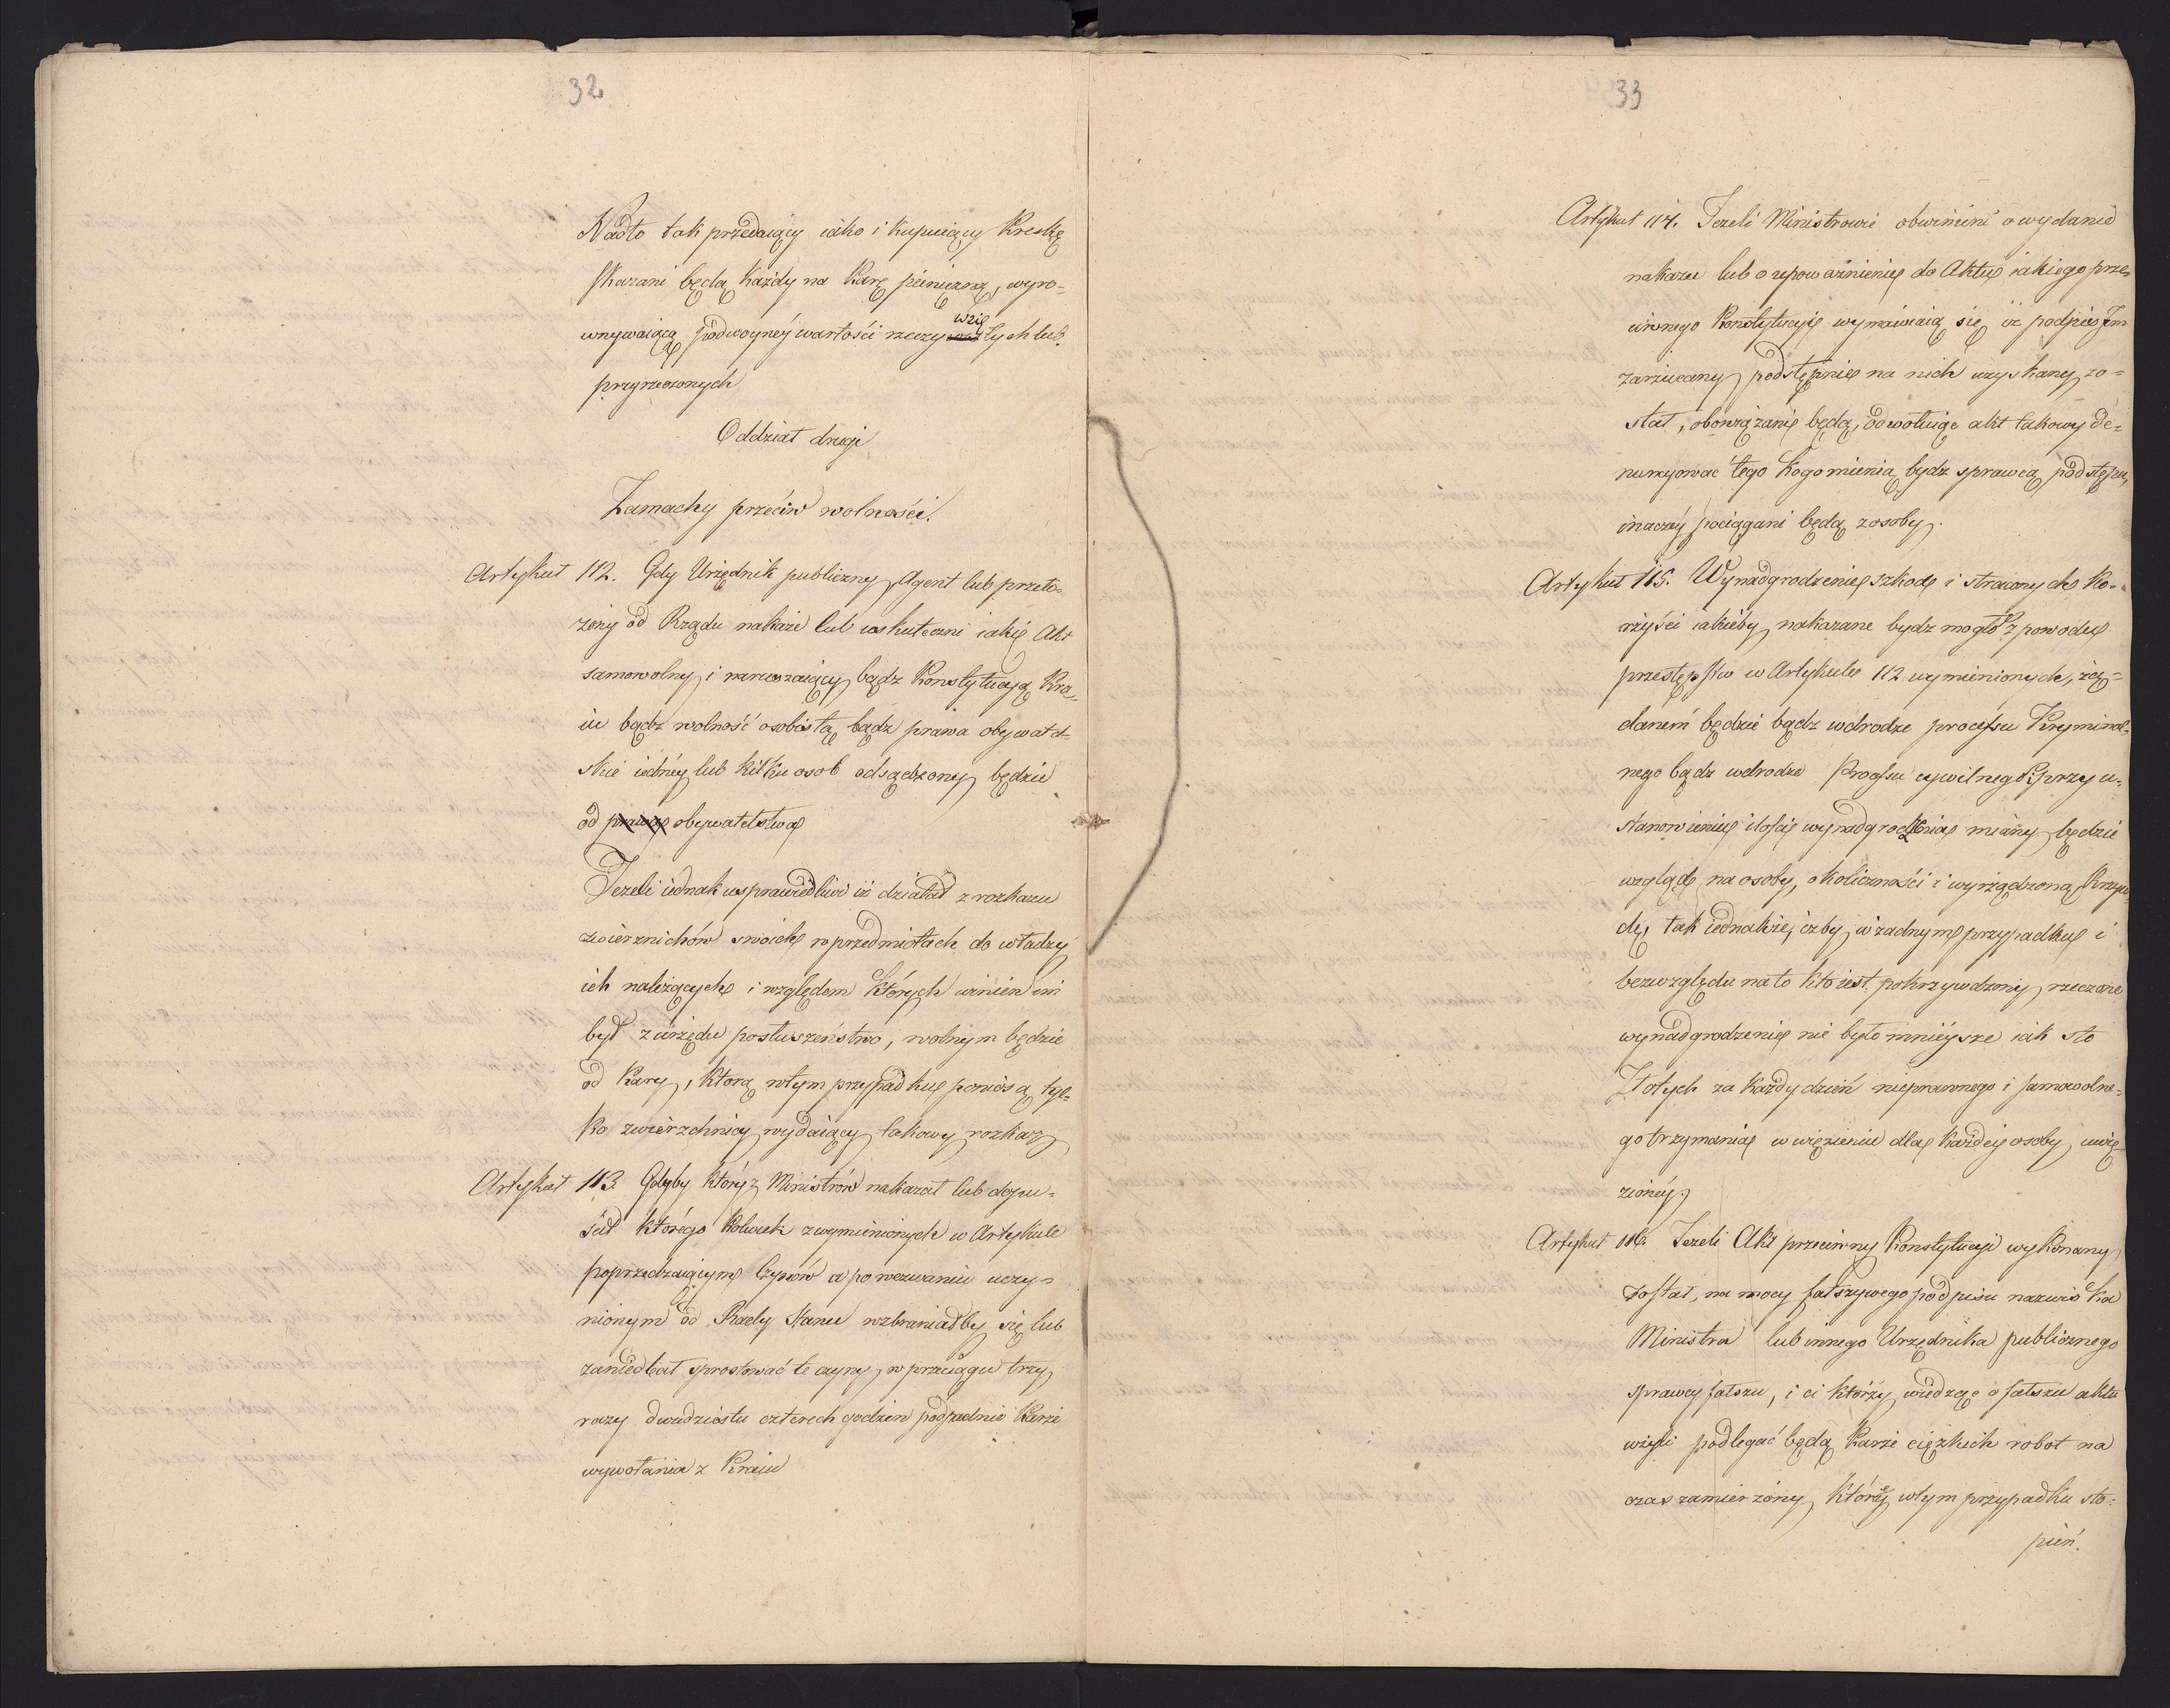 32
Nadto tak przedaiący iako i kupuiący Kreskę
skazani będą każdy na karę pieniężną, wyro=
wnywaiącą podwoyney wartości rzeczy wziętych lub
przyrzeczonych
Oddział drugi
Zamachy przeciw wolności.
Artykuł 112. Gdy Urzędnik publiczny, Agent lub przeło=
żony od Rządu nakaże lub uskuteczni iakie Akt
samowolny i naruszaiący bądź Konstytucyą Kra=
iu bądź wolność osobistą bądź prawa obywatel=
skie iedney lub kilku osob odsądzony będzie
od prawa obywatelstwa
Jeżeli iednak usprawiedliwi iż działał z rozkazu
zwierznichów swoich w przedmiotach do władzy
ich należących i względem których winien im
był z urzędu posłuszeństwo, wolnym będzie
od kary, którą w tym przypadku poniosą tyl=
ko zwierzchnicy wydaiący takowy rozkaz
Artykuł 113. Gdyby który z Ministrów nakazał lub dopu=
ścił którego kolwiek z wymienionych w Artykule
poprzedzaiącym Czynów a po wezwaniu uczy=
nionym od Rady Stanu wzbraniałby się lub
zaniedbał sprostować te czyny, w przeciągu trzy
razy dwudziestu czterech godzin podpadnie karze
wywołania z Kraiu
33
Artykuł 114. Jeżeli Ministrowie obwinieni o wydanie
nakazu lub o upoważnienie do Aktu iakiego prze=
ciwnego Konstytucyi wymawiaią się iż podpis Im
zarzucany podstępnie na nich uzyskany zo=
stał, obowiązani będą, odwołuiąc akt takowy de=
nuncyować tego kogo mienią bydź sprawcą podstępu,
inaczey pociągani będą z osoby.
Artykuł 115. Wynadgrodzenie szkod i straconych ko=
rzyści iakieby nakazane bydź mogło z powodu
przestępstw w Artykule 112 wymienionych, żą=
danem będzie bądź w drodze processu Kryminal=
nego bądź w drodze Processu cywilnego. Przy u=
stanowieniu ilości wynadgrodzenia miany będzie
wzgląd na osoby, okoliczności i wyrządzoną Krzyw
dę, tak iednakże, iżby w żadnym przypadku i
bez względu na to kto iest pokrzywdzony rzeczone
wynadgrodzenie nie było mnieysze iak sto
Złotych za każdy dzień nieprawnego i samowolne=
go trzymania w więzieniu dla każdej osoby uwię
zioney.
Artykuł 116. Jeżeli Akt przeciwny Konstytucyi wykonany
został, na mocy fałszywego podpisu nazwiska
Ministra lub innego Urzędnika publicznego
sprawcy fałszu, i ci którzy wiedząc o fałszu aktu
użyli podlegać będą karze ciężkich robot na
czas zamierzony, którey w tym przypadku sto=
pień.